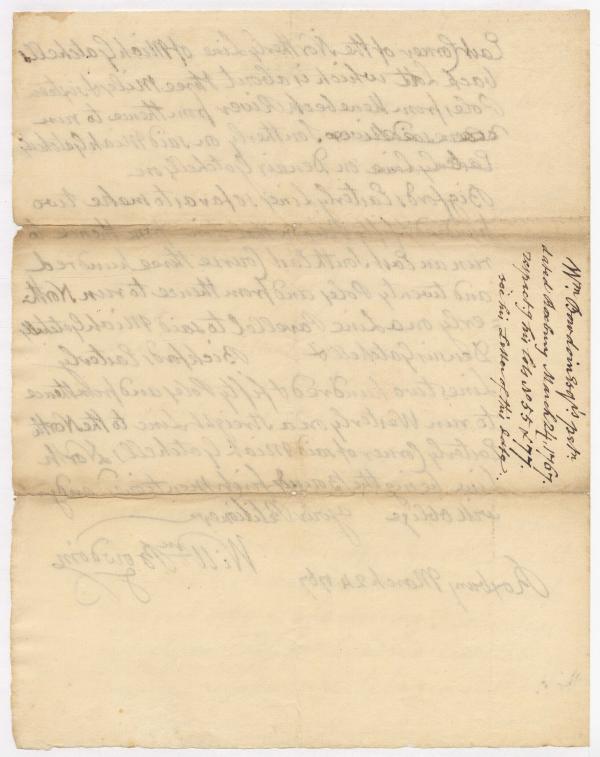 East Corner of the Northerly Line of Micah Getchells
back Lott which is about three Miles Sixteen
Poles from Kenebeck River from thence to run
said River Southerly on said Micah Getchels
Easterly Line on Dennis Getchells on
Bigfords Easterly Lines so far as to make two
run an East South East Course three hundred
and twenty Poles, and from thence to run North
erly on a Line Parellel to said Micah Getchells
Dennis Getchells & Bickfords Easterly
Lines two hundred & fifty Poles and from thence
to run Westerly on a Streight Line to the North
Easterly Corner of said Micah Getchells, North
Line being the Bounds first Mentioned and
will oblige Your Petitioner
Willm Bowdoin
Roxbury March 24 1767
Wm Bowdoin Esqrs petn
dated Roxbury March 24, 1767.
respectg his Lots No 55 & 77.
see his Letter of this date.